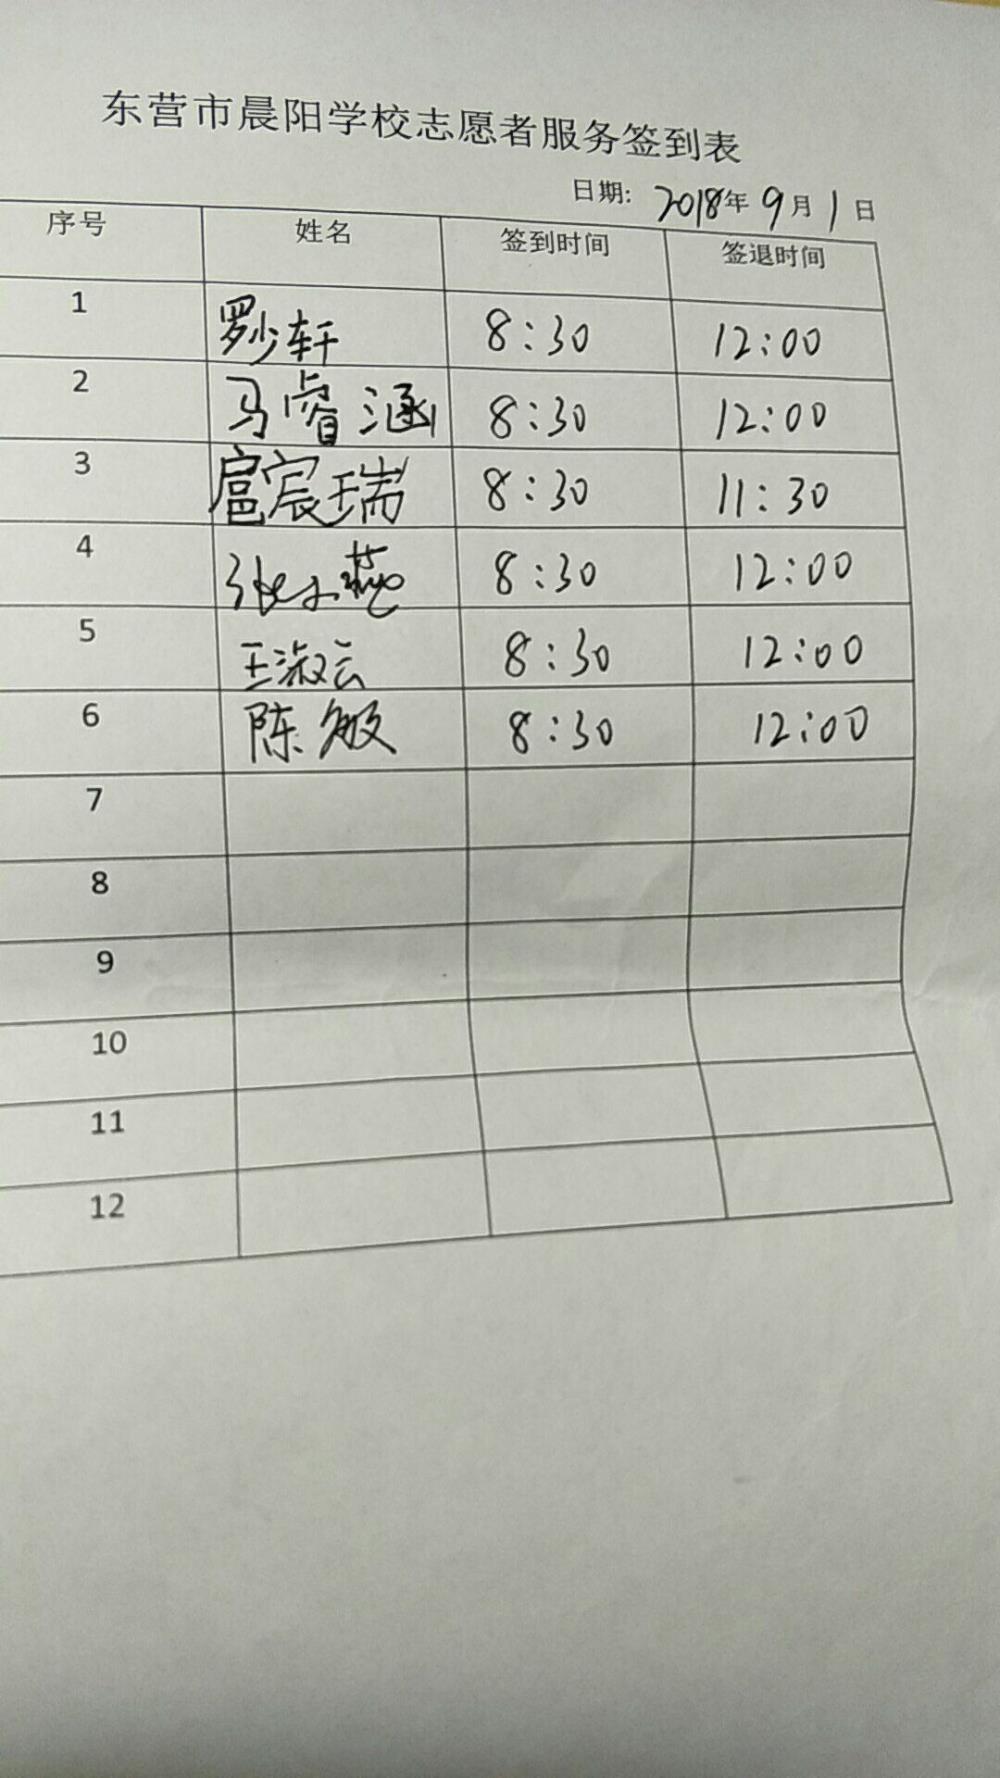 东营市晨阳学校志愿者服务签到表
日期: 2018年9月1日
序号 姓名 签到时间 签退时间
1 罗少轩 8:30 12:00
2 马睿涵 8:30 12:00
3 扈宸瑞 8:30 11:30
4 张 燕 8:30 12:00
5 王淑云 8:30 12:00
6 陈敏 8:30 12:00
7
8
9
10
11
12